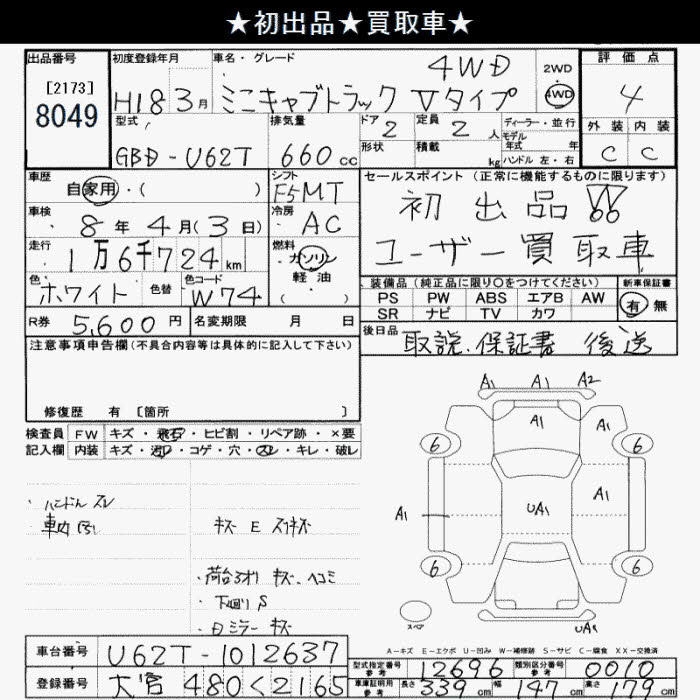 ★初出品★買取車★
出品番号 初度登録年月 車名・グレード 評価点
[2173] 8049 H18 3月 ミニキャブトラック Vタイプ 4WD 2WD 4WD 4
型式 排気量 ドア 2 定員 2人 ディーラー・並行 外装 内装
GBD-U62T 660cc 形状 積載 kg モデル年式 年 ハンドル 左・右 C C
車歴 自家用・( ) シフト F5MT セールスポイント(正常に機能するものに限ります)
車検 8年4月(3日) 冷房 AC 初出品
走行 1万6千724km 燃料 ガソリン 軽油 ( ) ユーザー買取車
色 ホワイト 色替 色コード W74 装備品(純正品に限り○をつけてください) 新車保証書
PS PW ABS エアB AW 有 無
SR ナビ TV カワ
R券 5,600円 名変期限 月 日
後日品 取説、保証書 後送
注意事項申告欄(不具合内容等は具体的に記入して下さい)
修復歴 有 [箇所 ]
検査員 FW キズ・飛石・ヒビ割・リペア跡・×要
記入欄 内装 キズ・汚れ・コゲ・穴・スレ・キレ・破レ
A1 A1 A2
A1 A1
6 6
・ハンドル スレ
・車内 汚レ
キズ E スリキズ
A1 UA1 A1
・荷台 キズ、ヘコミ
6 6
・下廻り S
ミラー キズ
スペア
UA1
A-キズ E-エクボ U-凹み W-補修跡 S-サビ C-腐食 XX-交換済
車台番号 U62T-1012637
型式指定番号 参考 12696 類別区分番号 参考 0010
登録番号 大宮 480 く 2165
車庫証明用 参考 長さ 339cm 幅 147cm 高さ 179cm